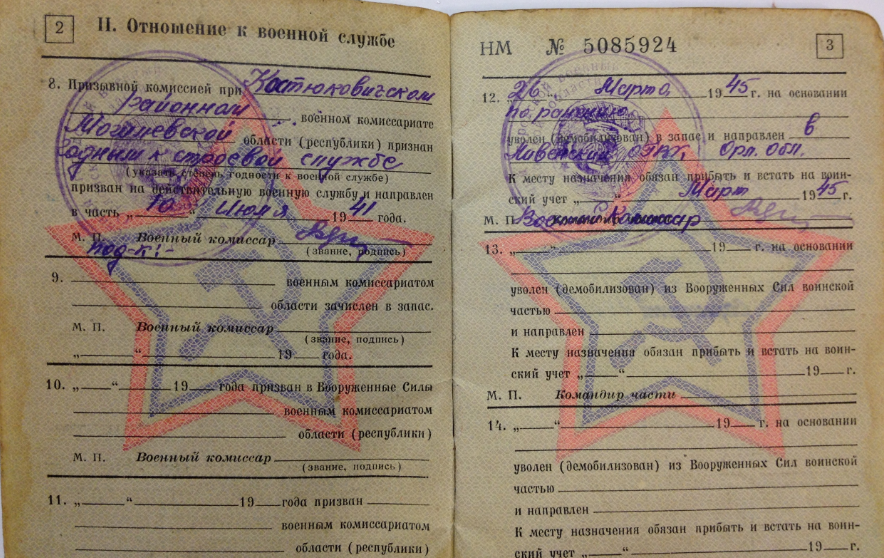 2
II. Отношение к военной службе
8. Призывной комиссией при Костюковичском
районном военном комиссариате
Могилевской области (республики) признан
годным к строевой службе
(указать степень годности к военной службе)
призван на действительную военную службу и направлен
в часть „10“ Июля 1941 года.
М. П. Военный комиссар
(звание, подпись)
9.
военным комиссариатом
области зачислен в запас.
М. П. Военный комиссар
(звание, подпись)
„ “ 19 года.
10. „ “ 19 года призван в Вооруженные Силы
военным комиссариатом
области (республики)
М. П. Военный комиссар
(звание, подпись)
11. „ “ 19 года призван
военным комиссариатом
области (республики)
НМ № 5085924
3
12. 26 Марта 1945 г. на основании
по ранению
уволен (демобилизован) в запас и направлен в
Ливенский Орл. обл.
К месту назначения обязан прибыть и встать на воин-
ский учет „ “ Март 1945 г.
М. П. Военный Комиссар
13. „ “ 19 г. на основании
уволен (демобилизован) из Вооруженных Сил воинской
частью
и направлен
К месту назначения обязан прибыть и встать на воин-
ский учет „ “ 19 г.
М. П. Командир части
14. „ “ 19 г. на основании
уволен (демобилизован) из Вооруженных Сил воинской
частью
и направлен
К месту назначения обязан прибыть и встать на воин-
ский учет „ “ 19 г.